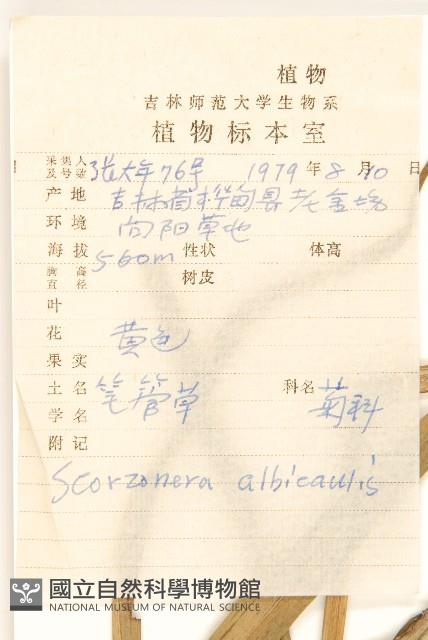 植物
吉林师范大学生物系
植物标本室
采集人及号数 张大年76号 1979年8月10日
产地 吉林省桦甸县老金场
环境 向阳草地
海拔 560m 性状 体高
胸高直径 树皮
叶
花 黄色
果实
土名 笔管草 科名 菊科
学名
附记
Scorzonera albicaulis
國立自然科學博物館
NATIONAL MUSEUM OF NATURAL SCIENCE